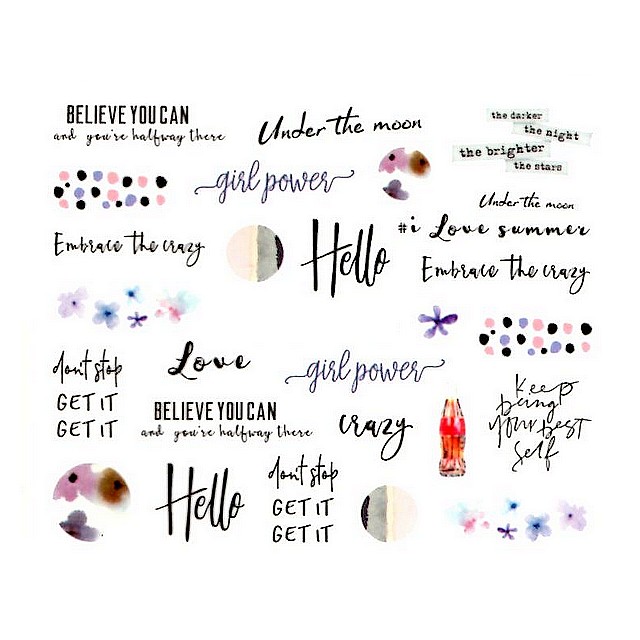 BELIEVE YOU CAN
and you're halfway there
Under the moon
the darker
the night
the brighter
the stars
girl power
Under the moon
#i Love summer
Embrace the crazy
Hello
Embrace the crazy
don't stop
GET IT
GET IT
Love
girl power
BELIEVE YOU CAN
and you're halfway there
crazy
Keep
being
your best
self
Hello
don't stop
GET IT
GET IT